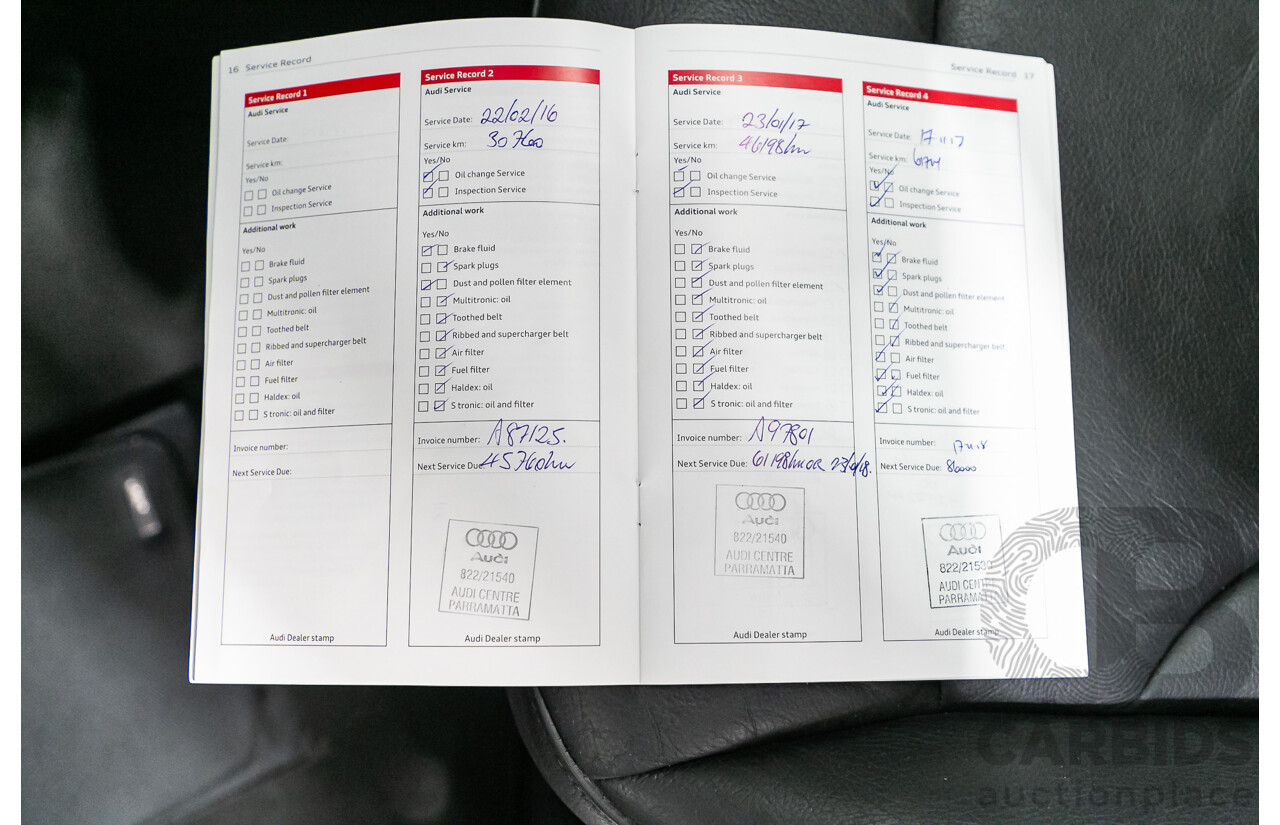 16 Service Record
Service Record 1
Audi Service
Service Date:
Service km:
Yes/No
Oil change Service
Inspection Service
Additional work
Yes/No
Brake fluid
Spark plugs
Dust and pollen filter element
Multitronic: oil
Toothed belt
Ribbed and supercharger belt
Air filter
Fuel filter
Haldex: oil
S tronic: oil and filter
Invoice number:
Next Service Due:
Audi Dealer stamp
Service Record 2
Audi Service
Service Date: 22/02/16
Service km: 30760
Yes/No
Oil change Service
Inspection Service
Additional work
Yes/No
Brake fluid
Spark plugs
Dust and pollen filter element
Multitronic: oil
Toothed belt
Ribbed and supercharger belt
Air filter
Fuel filter
Haldex: oil
S tronic: oil and filter
Invoice number: A87125.
Next Service Due: 45760km
Audi
822/21540
AUDI CENTRE
PARRAMATTA
Audi Dealer stamp
Service Record 17
Service Record 3
Audi Service
Service Date: 23/01/17
Service km: 46198km
Yes/No
Oil change Service
Inspection Service
Additional work
Yes/No
Brake fluid
Spark plugs
Dust and pollen filter element
Multitronic: oil
Toothed belt
Ribbed and supercharger belt
Air filter
Fuel filter
Haldex: oil
S tronic: oil and filter
Invoice number: A97801
Next Service Due: 61198km OR
Audi
822/21540
AUDI CENTRE
PARRAMATTA
Audi Dealer stamp
Service Record 4
Audi Service
Service Date: 17 11 17
Service km:
Yes/No
Oil change Service
Inspection Service
Additional work
Yes/No
Brake fluid
Spark plugs
Dust and pollen filter element
Multitronic: oil
Toothed belt
Ribbed and supercharger belt
Air filter
Fuel filter
Haldex: oil
S tronic: oil and filter
Invoice number:
Next Service Due:
Audi
AUDI CENTRE
PARRAMATTA
Audi Dealer stamp
CB
CARBIDS
auctionplace